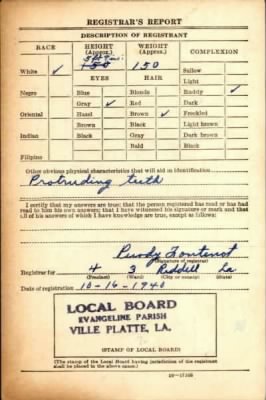 REGISTRAR'S REPORT
DESCRIPTION OF REGISTRANT
RACE HEIGHT (Approx.) WEIGHT (Approx.) COMPLEXION
White ✓ 150 150 Sallow
EYES HAIR Light
Negro Blue Blonde Ruddy ✓
Gray ✓ Red Dark
Oriental Hazel Brown ✓ Freckled
Brown Black Light brown
Indian Black Gray Dark brown
Bald Black
Filipino
Other obvious physical characteristics that will aid in identification
Protruding teeth
I certify that my answers are true; that the person registered has read or has had
read to him his own answers; that I have witnessed his signature or mark and that
all of his answers of which I have knowledge are true, except as follows:
Purdy Fontenot
(Signature of registrar)
Registrar for 4 3 Reddell La
(Precinct) (Ward) (City or county) (State)
Date of registration 10-16-1940
LOCAL BOARD
EVANGELINE PARISH
VILLE PLATTE, LA.
(STAMP OF LOCAL BOARD)
(The stamp of the Local Board having jurisdiction of the registrant
shall be placed in the above space.)